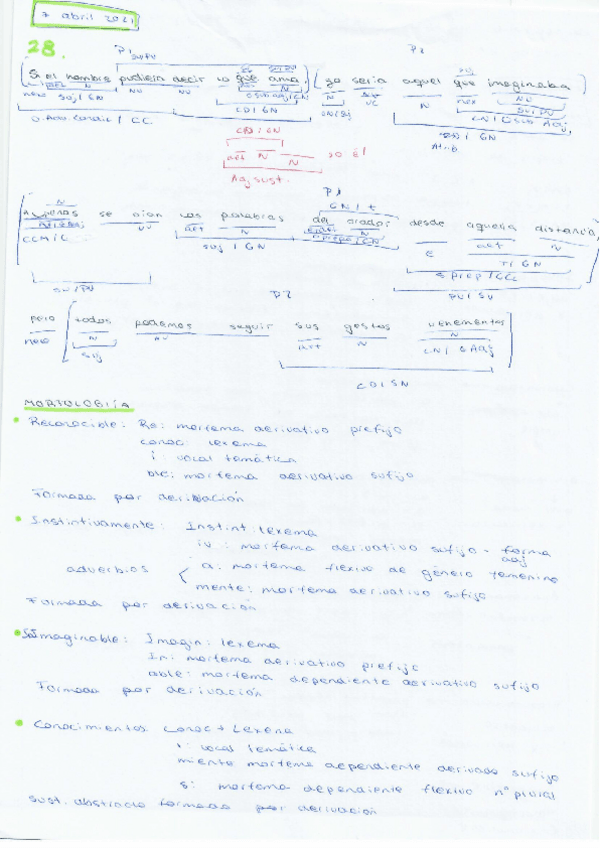 7 abril 2021
28.
P1 P2
SV/PV
Si el hombre pudiera decir lo que ama, yo sería aquel que imaginaba
nexo SUJ/GN
CD/GN
O. Adv. Condic / CC
CN / GN
Atrib
CD/GN
art N N → Él
Adj sust.
P1
GN / t
Apenas se oían las palabras del orador desde aquella distancia,
CCM/C art N
SUJ / GN E art N
T / GN
S prep / CC
SV/PV PV / SV
P2
pero todos podemos seguir sus gestos vehementes
nexo N art N CN / GAdj
SUJ
CD / SN
MORFOLOGÍA
Reconocible: Re: morfema derivativo prefijo
conoc: lexema
i: vocal temática
ble: morfema derivativo sufijo
Formada por derivación
Instintivamente: Instint: lexema
iv: morfema derivativo sufijo - forma adj
adverbios a: morfema flexivo de género femenino
mente: morfema derivativo sufijo
Formada por derivación
Inimaginable: Imagin: lexema
In: morfema derivativo prefijo
able: morfema dependiente derivativo sufijo
Formada por derivación
Conocimientos: conoc + Lexema
i: vocal temática
miento morfema dependiente derivado sufijo
s: morfema dependiente flexivo nº plural
Sust. abstracto formada por derivación